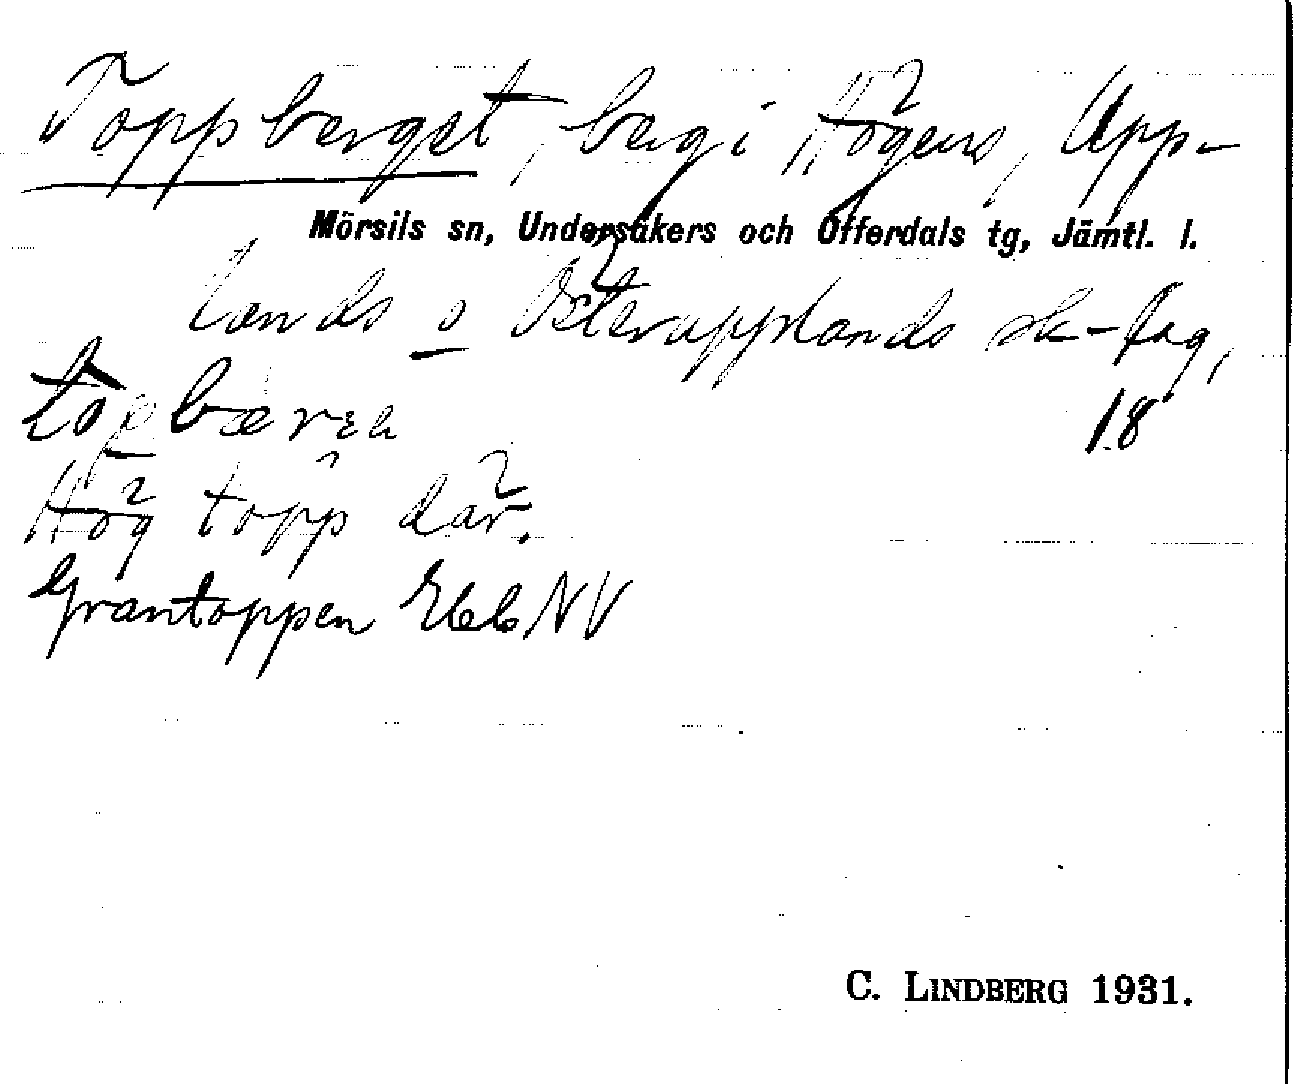 Toppberget, berg i Högens, Upp-
Mörsils sn, Undersåkers och Offerdals tg, Jämtl. l.
lands o Österupplands sk-lag,
18
Hög topp där.
Grantoppen Ebl NV
C. LINDBERG 1931.